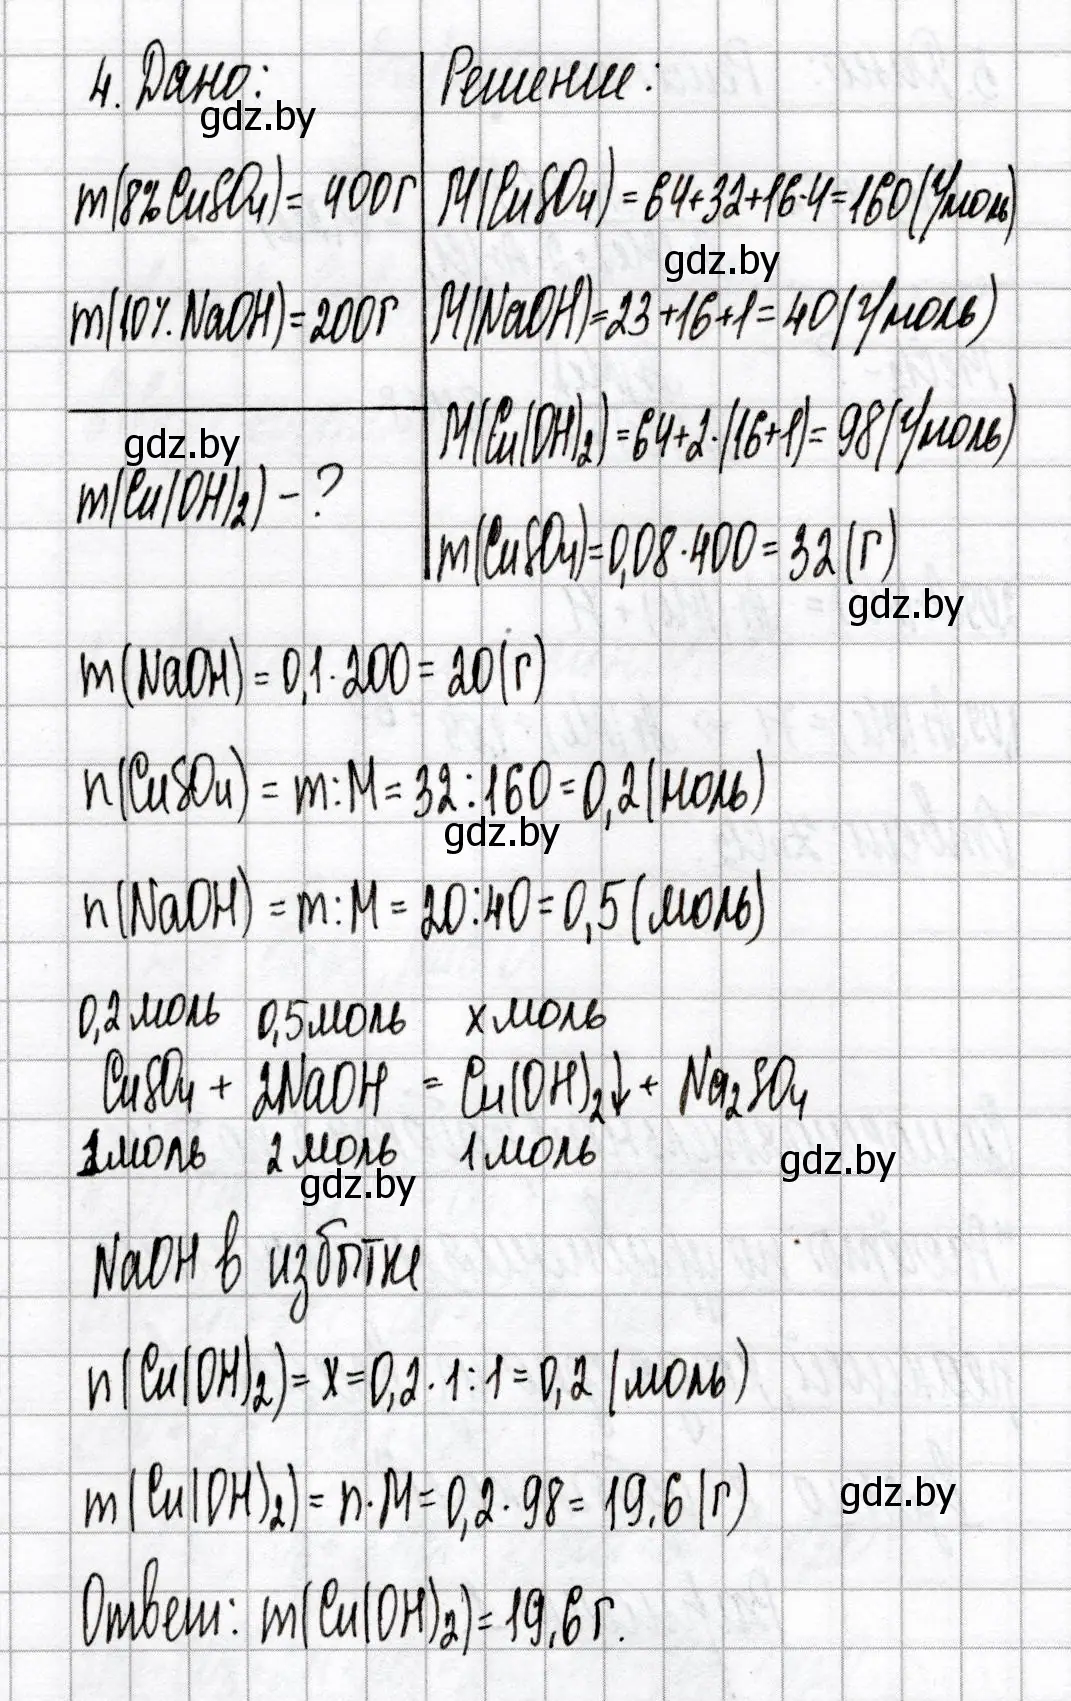 4. Дано:
gdz.by
m(8% CuSO₄) = 400г
m(10% NaOH) = 200г
gdz.by
m(Cu(OH)₂) - ?
Решение:
M(CuSO₄) = 64+32+16·4=160(г/моль)
gdz.by
M(NaOH)=23+16+1=40(г/моль)
M(Cu(OH)₂)=64+2·(16+1)=98(г/моль)
m(CuSO₄)=0,08·400=32(г)
gdz.by
m(NaOH)=0,1·200=20(г)
n(CuSO₄) = m:M=32:160=0,2(моль)
gdz.by
n(NaOH) = m:M = 20:40=0,5(моль)
0,2моль 0,5моль x моль
CuSO₄ + 2NaOH = Cu(OH)₂↓ + Na₂SO₄
1моль 2 моль 1 моль
gdz.by
gdz.by
NaOH в избытке
n(Cu(OH)₂)= x=0,2·1:1=0,2 (моль)
m(Cu(OH)₂)= n·M=0,2·98= 19,6(г)
gdz.by
Ответ: m(Cu(OH)₂)=19,6г.